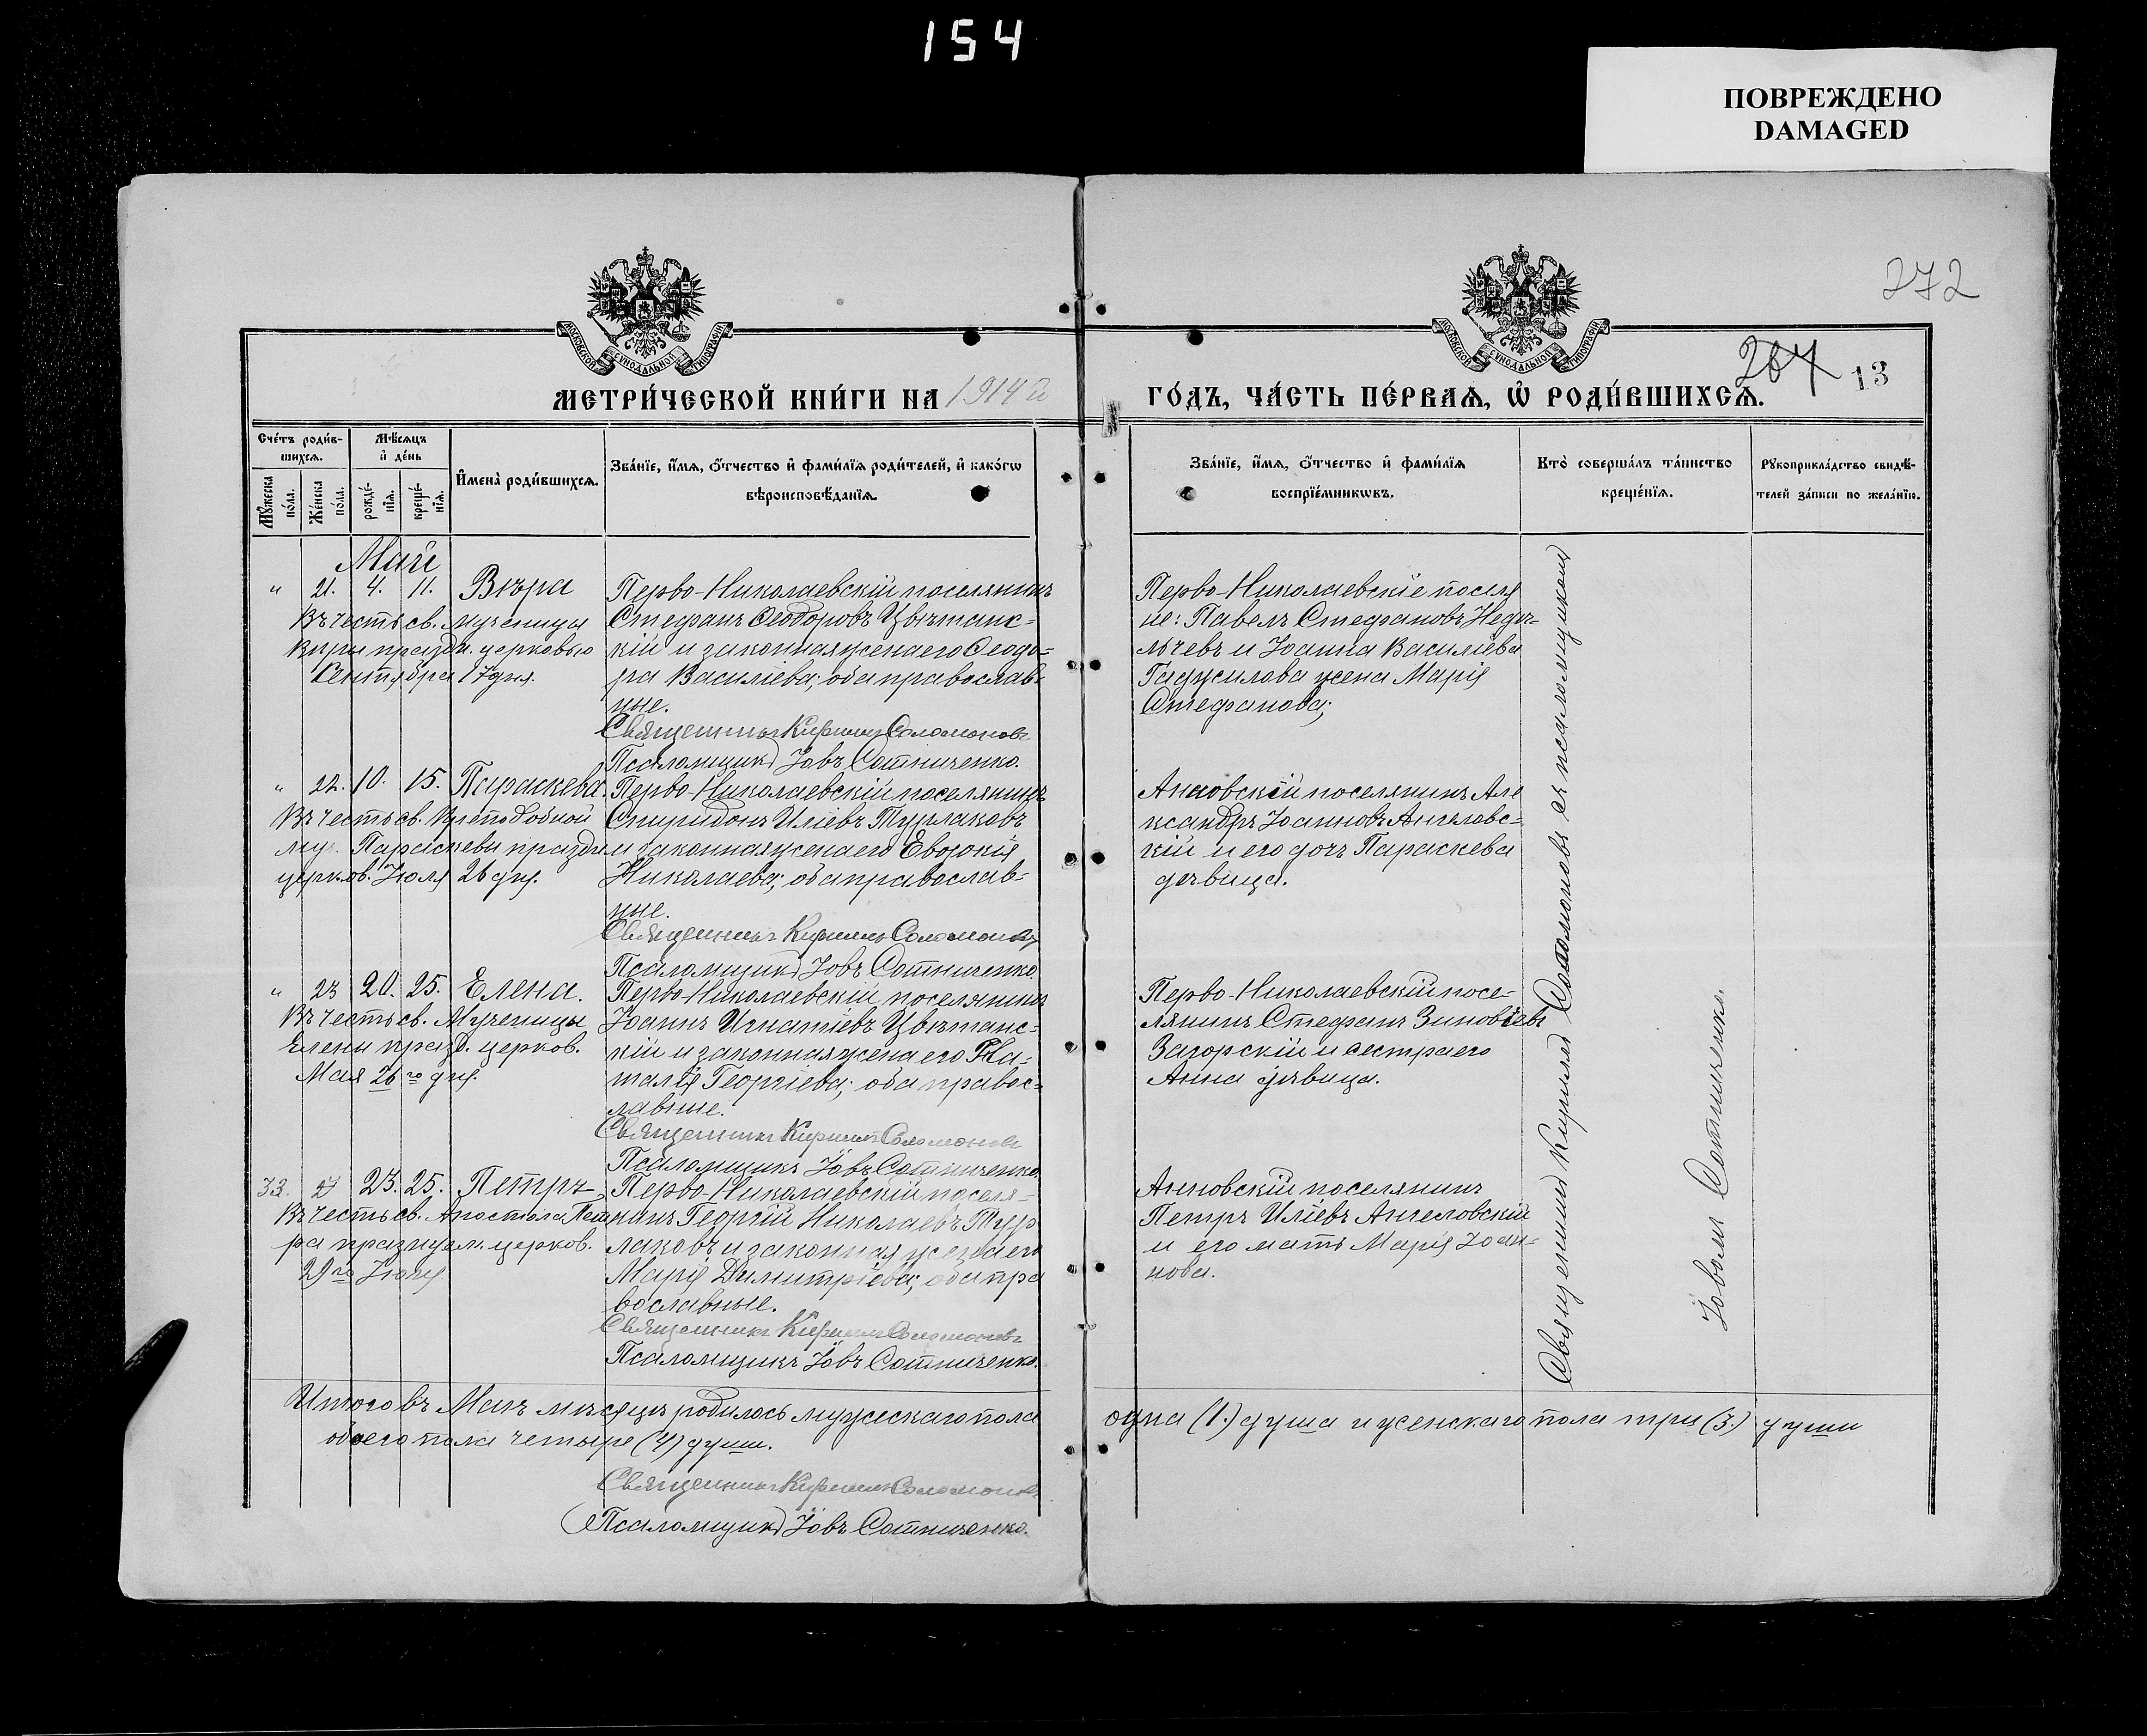 154
ПОВРЕЖДЕНО
DAMAGED
272
МОСКОВСКОЙ СѴНОДАЛЬНОЙ ТИПОГРАФІИ
МОСКОВСКОЙ СѴНОДАЛЬНОЙ ТИПОГРАФІИ
МЕТРИ́ЧЕСКОЙ КНИ́ГИ НА 1914й
ГО́ДЪ, ЧА́СТЬ ПЕ́РВАѦ, Ѽ РОДИ́ВШИХСѦ.
267
13
Сче́тъ роди́в-
шихсѧ.
Мꙋ́жеска по́ла.
Же́нска по́ла.
Мѣ́сѧцъ
и҆ де́нь
рожде́-нїѧ.
креще́-нїѧ.
И҆мена̀ роди́вшихсѧ.
Зва́нїе, и҆́мѧ, ѻ҆́тчество и҆ фами́лїѧ роди́телей, и҆ како́гѡ
вѣроисповѣ́данїѧ.
Зва́нїе, и҆́мѧ, ѻ҆́тчество и҆ фами́лїѧ
воспрїе́мникѡвъ.
Кто̀ соверша́лъ та́инство
креще́нїѧ.
Рꙋкоприкла́дство свидѣ́-
телей за́писи по жела́нїю.
Май
" 21. 4. 11. Вѣра
Въ честь св. мученицы
Вѣры праздн. церковью
Сентября 17 дня.
Перво-Николаевскій поселянинъ
Стефанъ Ѳеодоровъ Цвѣтанс-
кій и законная жена его Ѳеодо-
ра Василіева; оба православ-
ные.
Священникъ Кириллъ Соломоновъ
Псаломщикъ Іовъ Сотниченко.
Перво-Николаевскіе поселя
не: Павелъ Стефановъ
и Іоанна Василіева
жена Марія
Стефанова;
" 22. 10. 15. Параскева.
Въ честь св. Преподобной
муч. Параскевы праздн.
церков. Іюля 26 дня.
Перво-Николаевскій поселянинъ
Спиридонъ Иліевъ Турлаковъ
и законная жена его Евдокія
Николаева; оба православ-
ные.
Священникъ Кириллъ Соломоновъ
Псаломщикъ Іовъ Сотниченко.
Анновскій поселянинъ Але
ксандръ Іоанновъ Ангеловс-
кій и его дочь Параскева
дѣвица.
" 23 20. 25. Елена.
Въ честь св. Мученицы
Елены празд. церков.
Мая 26го дня.
Перво-Николаевскій поселянинъ
Іоаннъ Игнатіевъ Цвѣтанс-
кій и законная жена его На-
талія Георгіева; оба правос-
лавные.
Священникъ Кириллъ Соломоновъ
Псаломщикъ Іовъ Сотниченко.
Перво-Николаевскій посе-
лянинъ Стефанъ Зиновіевъ
Загорскій и сестра его
Анна дѣвица.
33. " 23. 25. Петръ
Въ честь св. Апостола Пет
ра празнуем. церков.
29го Іюня
Перво-Николаевскій поселя-
нинъ Георгій Николаевъ Тур
лаковъ и законная жена его
Марія Димитріева; оба пра
вославные.
Священникъ Кириллъ Соломоновъ
Псаломщикъ Іовъ Сотниченко.
Анновскій поселянинъ
Петръ Иліевъ Ангеловскій
и его мать Марія Іоан-
нова.
Священникъ Кириллъ Соломоновъ съ псаломщикомъ
Іовомъ Сотниченко.
Итого въ Маѣ мѣсяцѣ родилось мужескаго пола одна (1.) душа и женскаго пола три (3.) души
обоего пола четыре (4) души.
Священникъ Кириллъ Соломоновъ
Псаломщикъ Іовъ Сотниченко.